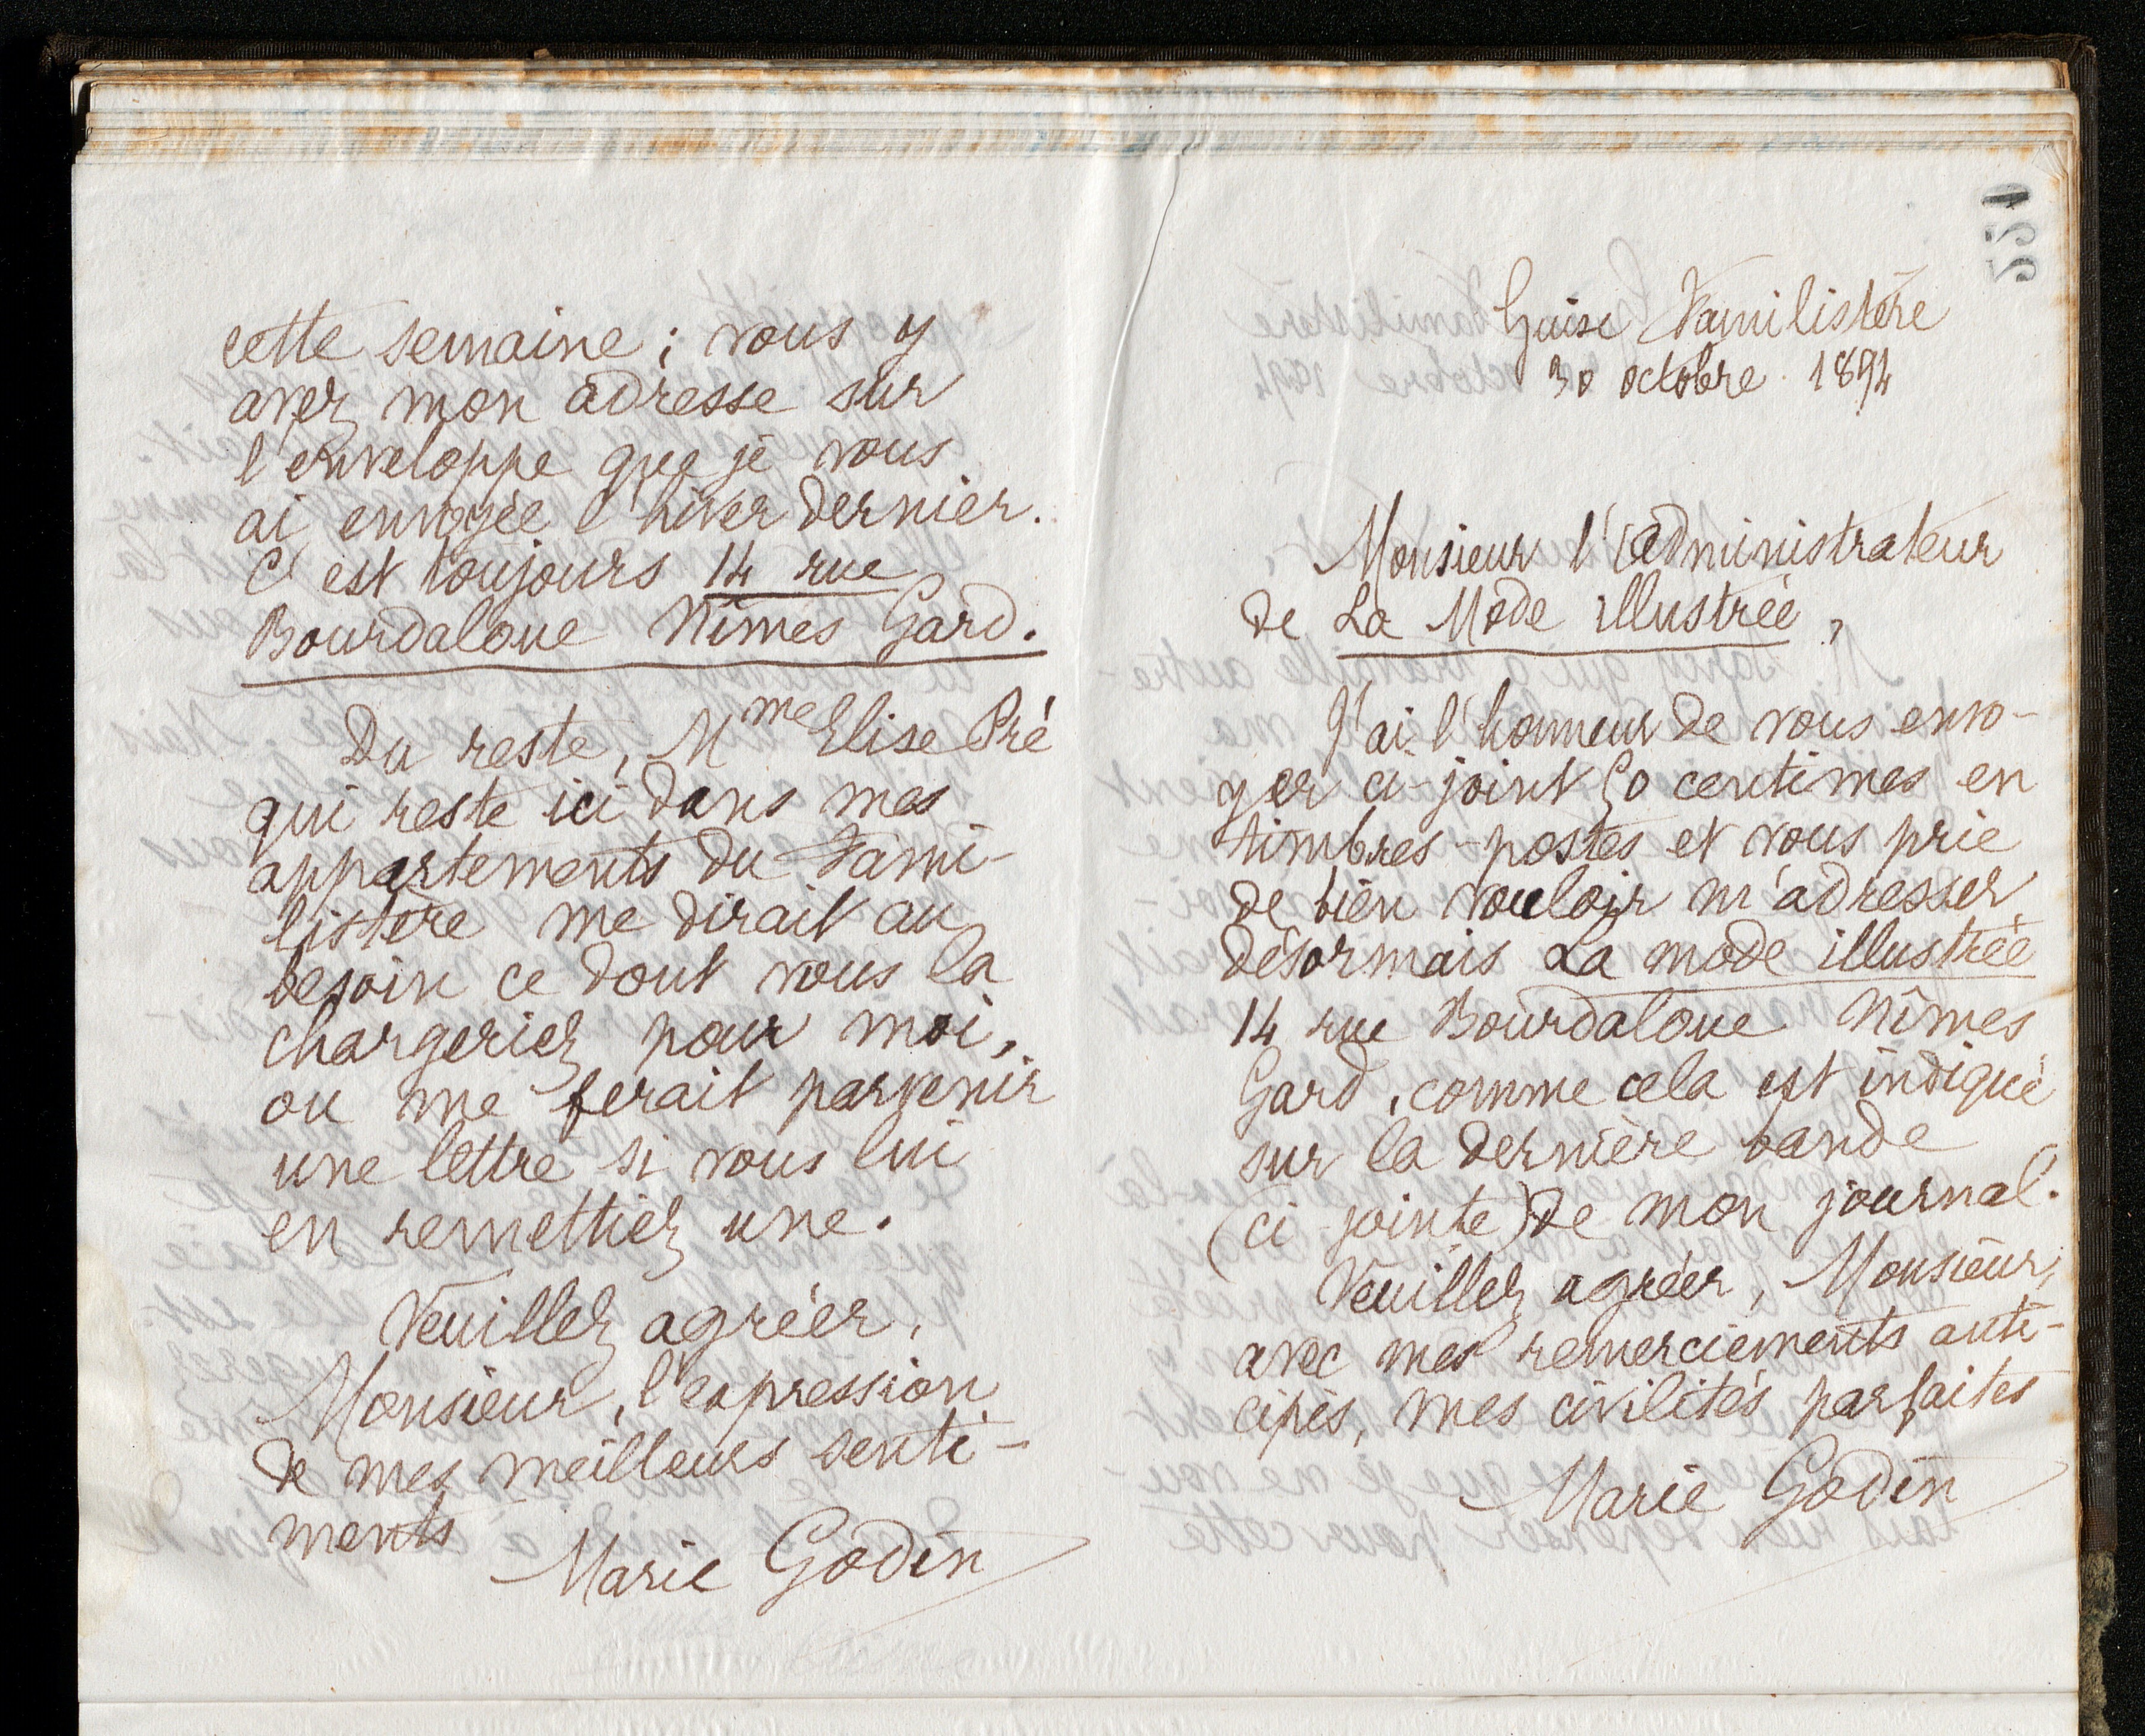 cette semaine ; vous y
avez mon adresse sur
l'enveloppe que je vous
ai envoyée l'hiver dernier.
C'est toujours 14 rue
Bourdaloue Nîmes Gard.
Du reste, Mme Elise Pré
qui reste ici dans mes
appartements du Fami-
listère me dirait au
besoin ce dont vous la
chargeriez pour moi,
ou me ferait parvenir
une lettre si vous lui
en remettiez une.
Veuillez agréer,
Monsieur, l'expression
de mes meilleurs senti-
ments
Marie Godin
551
Guise Familistère
30 octobre 1894
Monsieur l'administrateur
de La Mode illustrée,
J'ai l'honneur de vous envo-
yer ci-joint 50 centimes en
timbres-postes et vous prie
de bien vouloir m'adresser
désormais La mode illustrée
14 rue Bourdaloue Nîmes
Gard, comme cela est indiqué
sur la dernière bande
(ci jointe) de mon journal.
Veuillez agréer, Monsieur,
avec mes remerciements anti-
cipés, mes civilités parfaites
Marie Godin